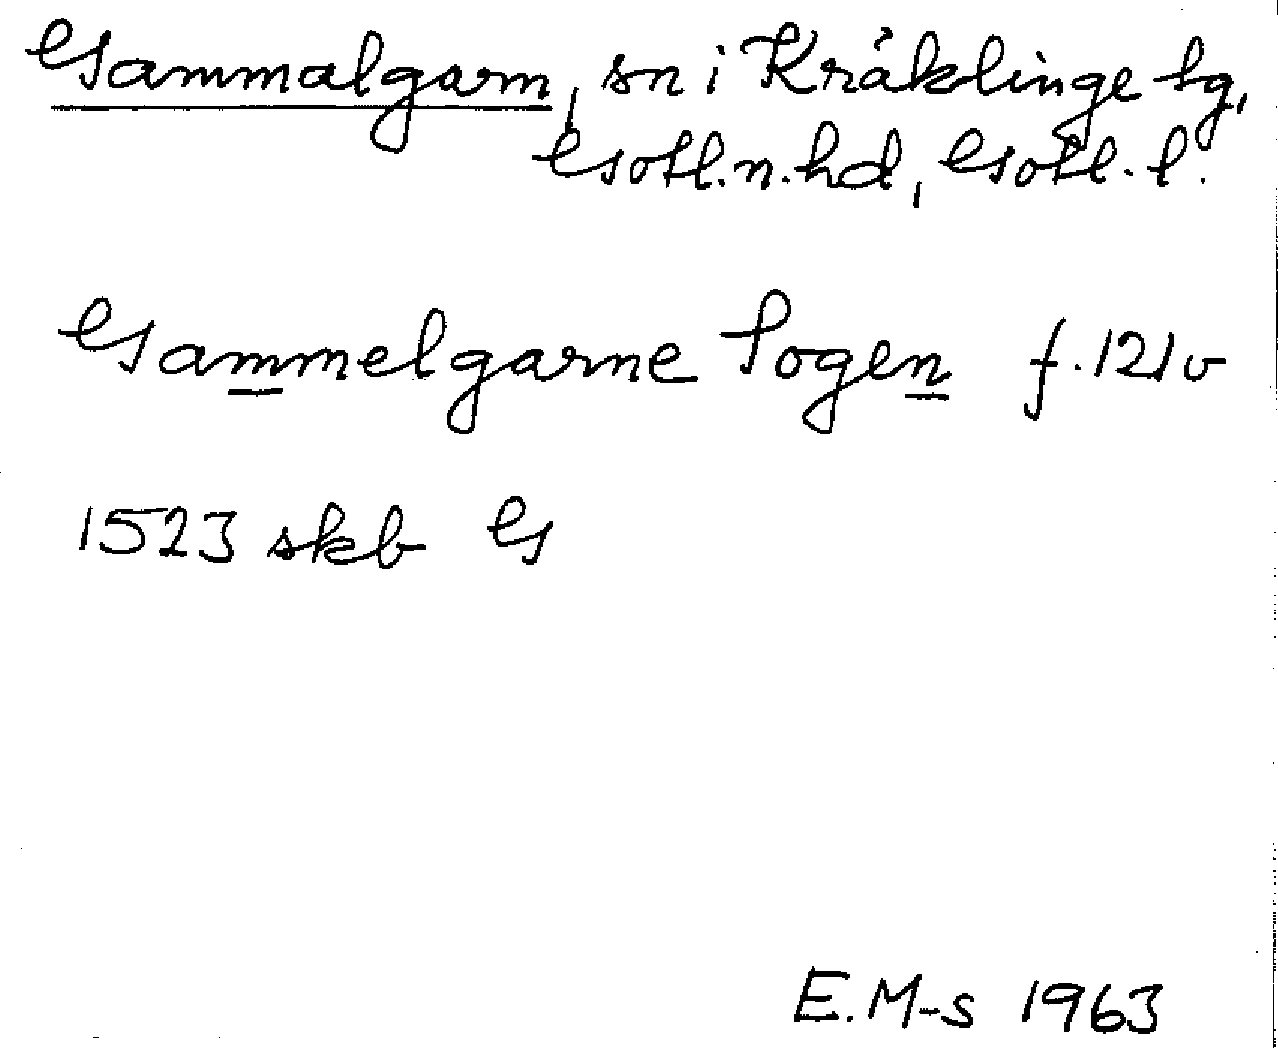 Gammalgarn, sn i Kräklinge tg,
Gotl. n. hd, Gotl. l.
Gammelgarne Sogen f. 121v
1523 skb G
E. M-s 1963